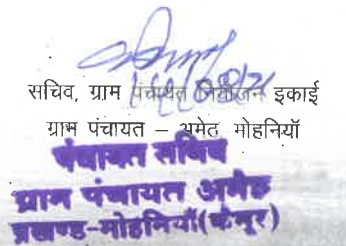 सचिव, ग्राम पंचायत नियोजन इकाई
ग्राम पंचायत – अमेठ मोहनियाँ
पंचायत सचिव
ग्राम पंचायत अमेठ
प्रखण्ड-मोहनियाँ(कैमूर)